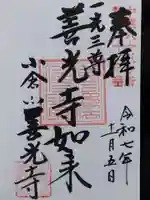 奉拝
令和七年
十一月五日
一光三尊
善光寺如来
小倉山善光寺